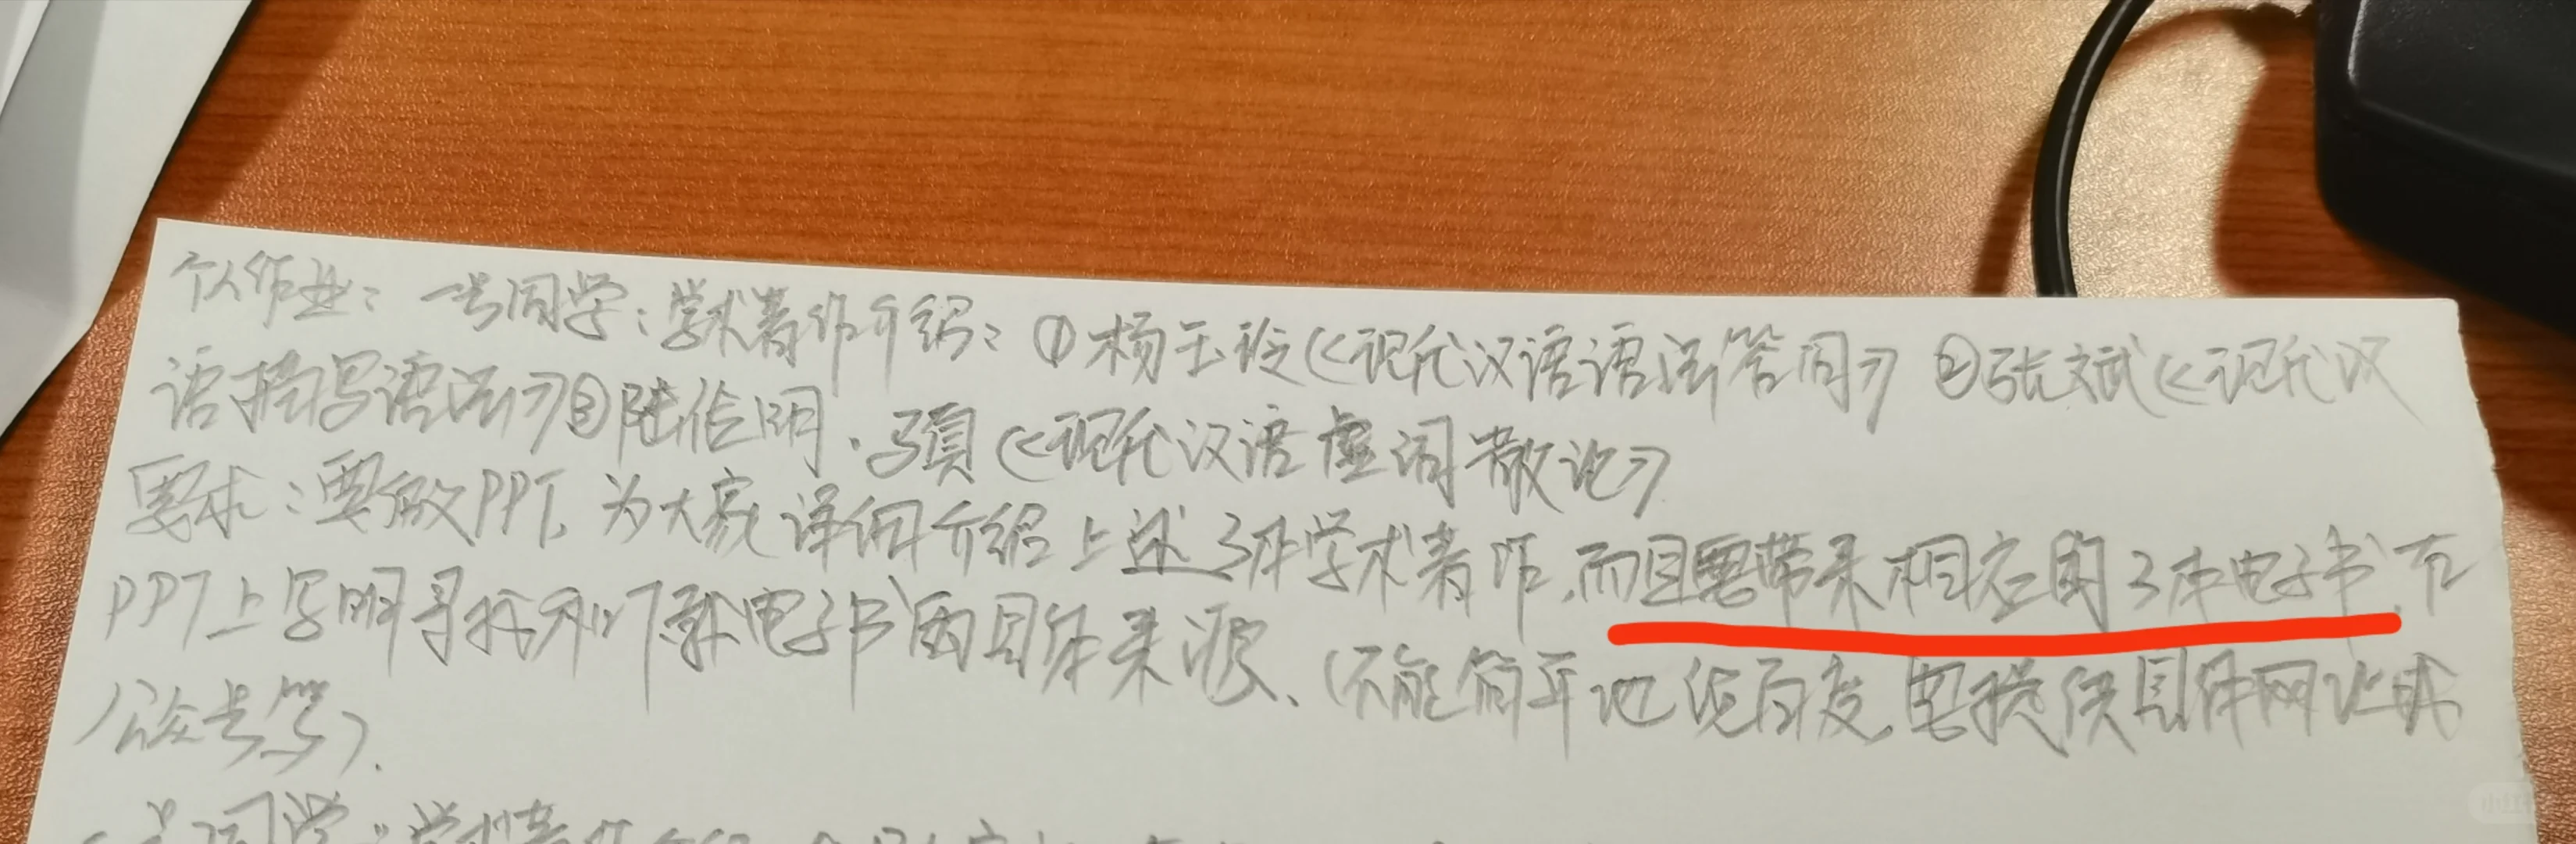 个人作业：一号同学：学术著作介绍：①杨玉玲《现代汉语语法答问》②张斌《现代汉
语描写语法》③陆俭明·马真《现代汉语虚词散论》
要求：要做PPT，为大家详细介绍上述3本学术著作，而且要带来相应的3本电子书，在
PPT上写明寻找和下载电子书的具体来源、（不能简单地说百度，要提供具体网址或
公众号等）.
号同学：学术著作介绍